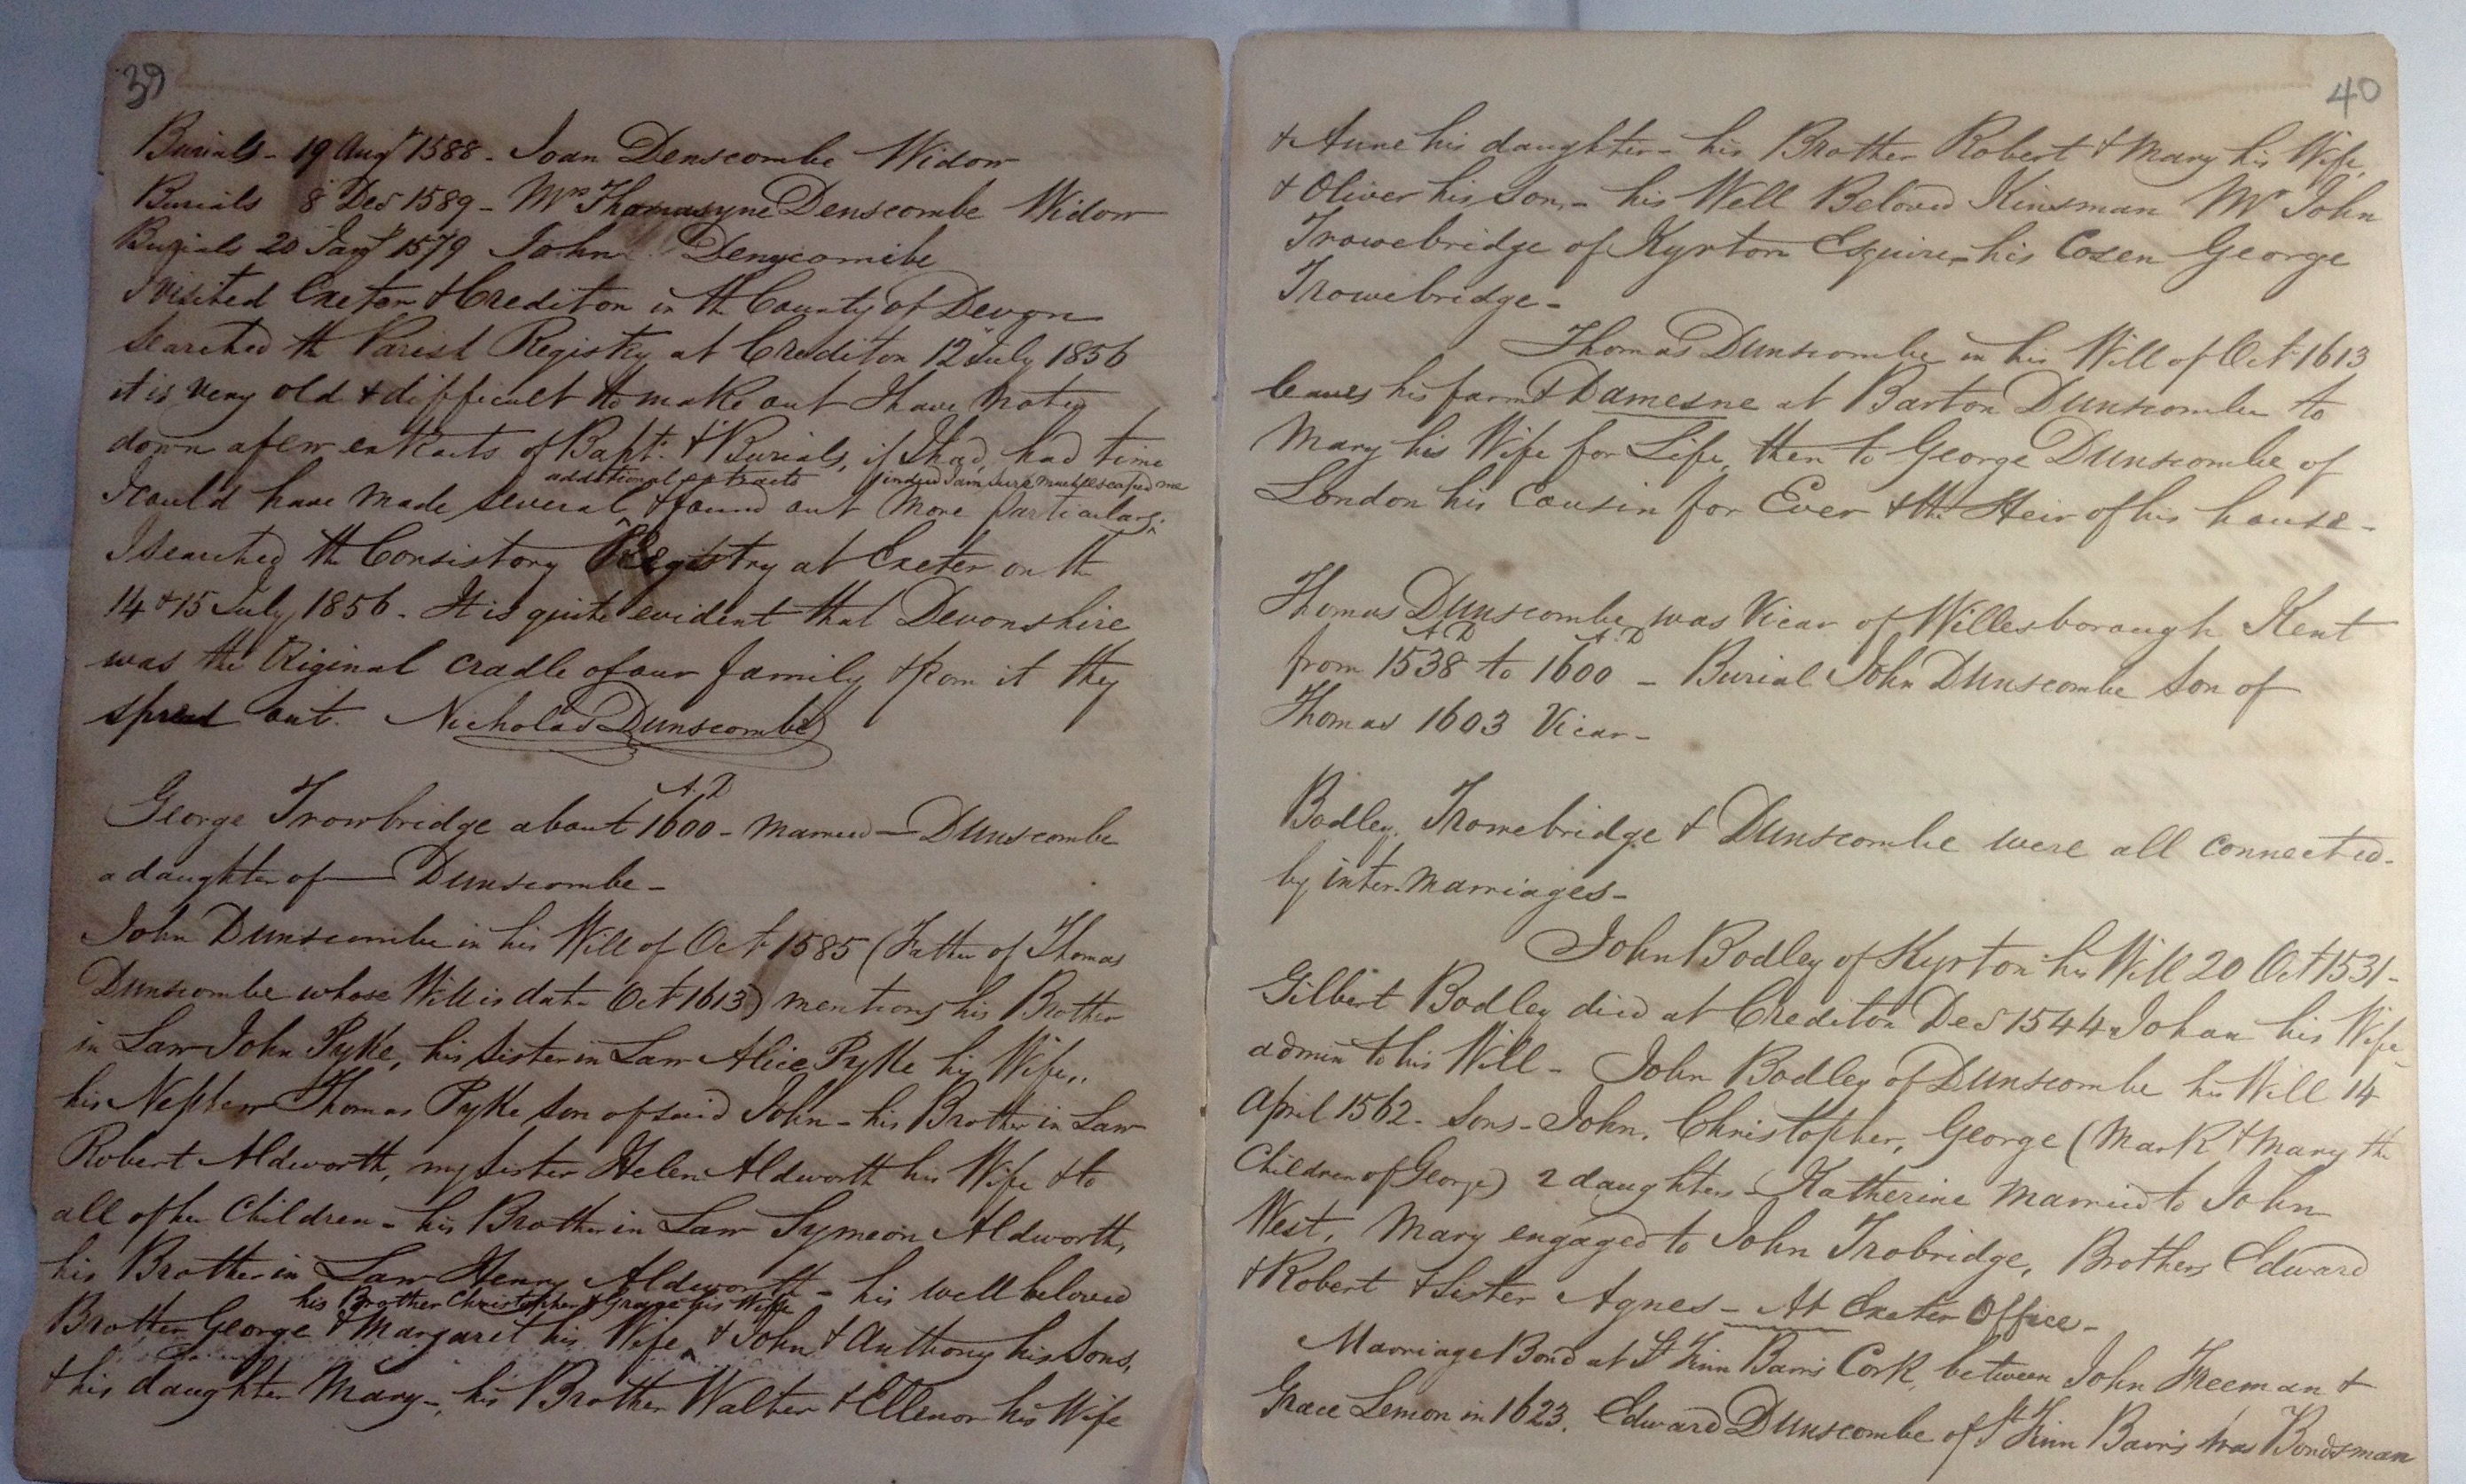 39
Burials - 19 Augt 1588 - Joan Denscombe Widow
Burials 8 Decr 1589 - Mrs Thomasyne Denscombe Widow
Burials 20 Jany 1579 John Denscombe
I visited Exeter & Crediton in the County of Devon
searched the Parish Registry at Crediton 12 July 1856
it is very old & difficult to make out I have noted
down a few extracts of Bapt: & Burials, if I had, had time
additional extracts indeed I am sure much escaped me
I could have made several & found out more particulars.
I searched the Consistory Registry at Exeter on the
14 & 15 July 1856 - It is quite evident that Devonshire
was the Original cradle of our family & from it they
spread out. Nicholas Dunscombe
A.D
George Trowbridge about 1600 - married — Dunscombe
a daughter of — Dunscombe -
John Dunscombe in his Will of Octr 1585 (Father of Thomas
Dunscombe whose Will is date Octr 1613) mentions his Brother
in Law John Pyke, his sister in Law Alice Pyke his Wife,.
his Nephew Thomas Pyke son of said John - his Brother in Law
Robert Aldworth, my sister Helen Aldworth his Wife & to
all of her Children - his Brother in Law Symeon Aldworth,
his Brother in Law Henry Aldworth - his well beloved
his Brother Christopher & Grace his Wife
Brother George & Margaret his Wife ^ & John & Anthony his Sons,
& his daughter Mary -, his Brother Walter & Ellenor his Wife
40
& Anne his daughter - his Brother Robert & Mary his Wife,
& Oliver his son, - his Well Beloved Kinsman Mr John
Trowebridge of Kyrton Esquire, his Cosen George
Trowebridge -
Thomas Dunscombe in his Will of Octr 1613
leaves his farm & Damesne at Barton Dunscombe to
Mary his Wife for Life, then to George Dunscombe of
London his Cousin for Ever & the Heir of his house -
Thomas Dunscombe was Vicar of Willesborough Kent
A D A.D
from 1538 to 1600 - Burial John Dunscombe son of
Thomas 1603 Vicar -
Bodley, Trowebridge & Dunscombe were all connected
by inter-marriages -
John Bodley of Kyrton his Will 20 Oct 1531 -
Gilbert Bodley died at Crediton Decr 1544 Johan his Wife
admin to his Will - John Bodley of Dunscombe his Will 14
April 1562 - Sons - John, Christopher, George (Mark & Mary the
Children of George) 2 daughters - Katherine married to John
West, Mary engaged to John Trobridge, Brothers Edward
& Robert & sister Agnes - At Exeter Office -
Marriage Bond at St Finn Barrs Cork, between John Freeman &
Grace Lemon in 1623. Edward Dunscombe of St Finn Barrs was Bondsman